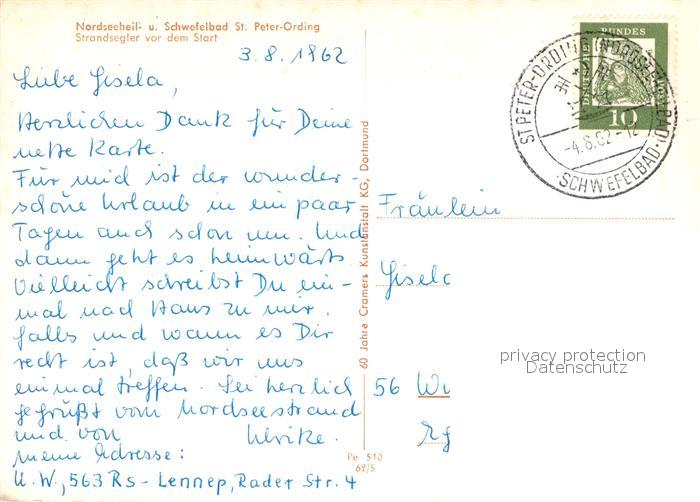 Nordseeheil- u. Schwefelbad St. Peter-Ording
Strandsegler vor dem Start
3.8.1962
Liebe Gisela,
Herzlichen Dank für Deine
nette Karte.
Für mich ist der wunder-
schöne Urlaub in ein paar
Tagen auch schon um. Und
dann geht es heimwärts
Vielleicht schreibst Du ein-
mal nach Haus zu mir,
falls und wann es Dir
recht ist, daß wir uns
einmal treffen. Sei herzlich
gegrüßt vom Nordseestrand
und von Ulrike.
meine Adresse:
U.W., 563 Rs-Lennep, Rader Str. 4
60 Jahre Cramers Kunstanstalt KG, Dortmund
Pe 510
62/5
DEUTSCHE BUNDES
10
ST. PETER-ORDING (NORDSEEHEILBAD)
-4.8.62-12
SCHWEFELBAD
Fräulein
Gisela
56 Wu
privacy protection
Datenschutz